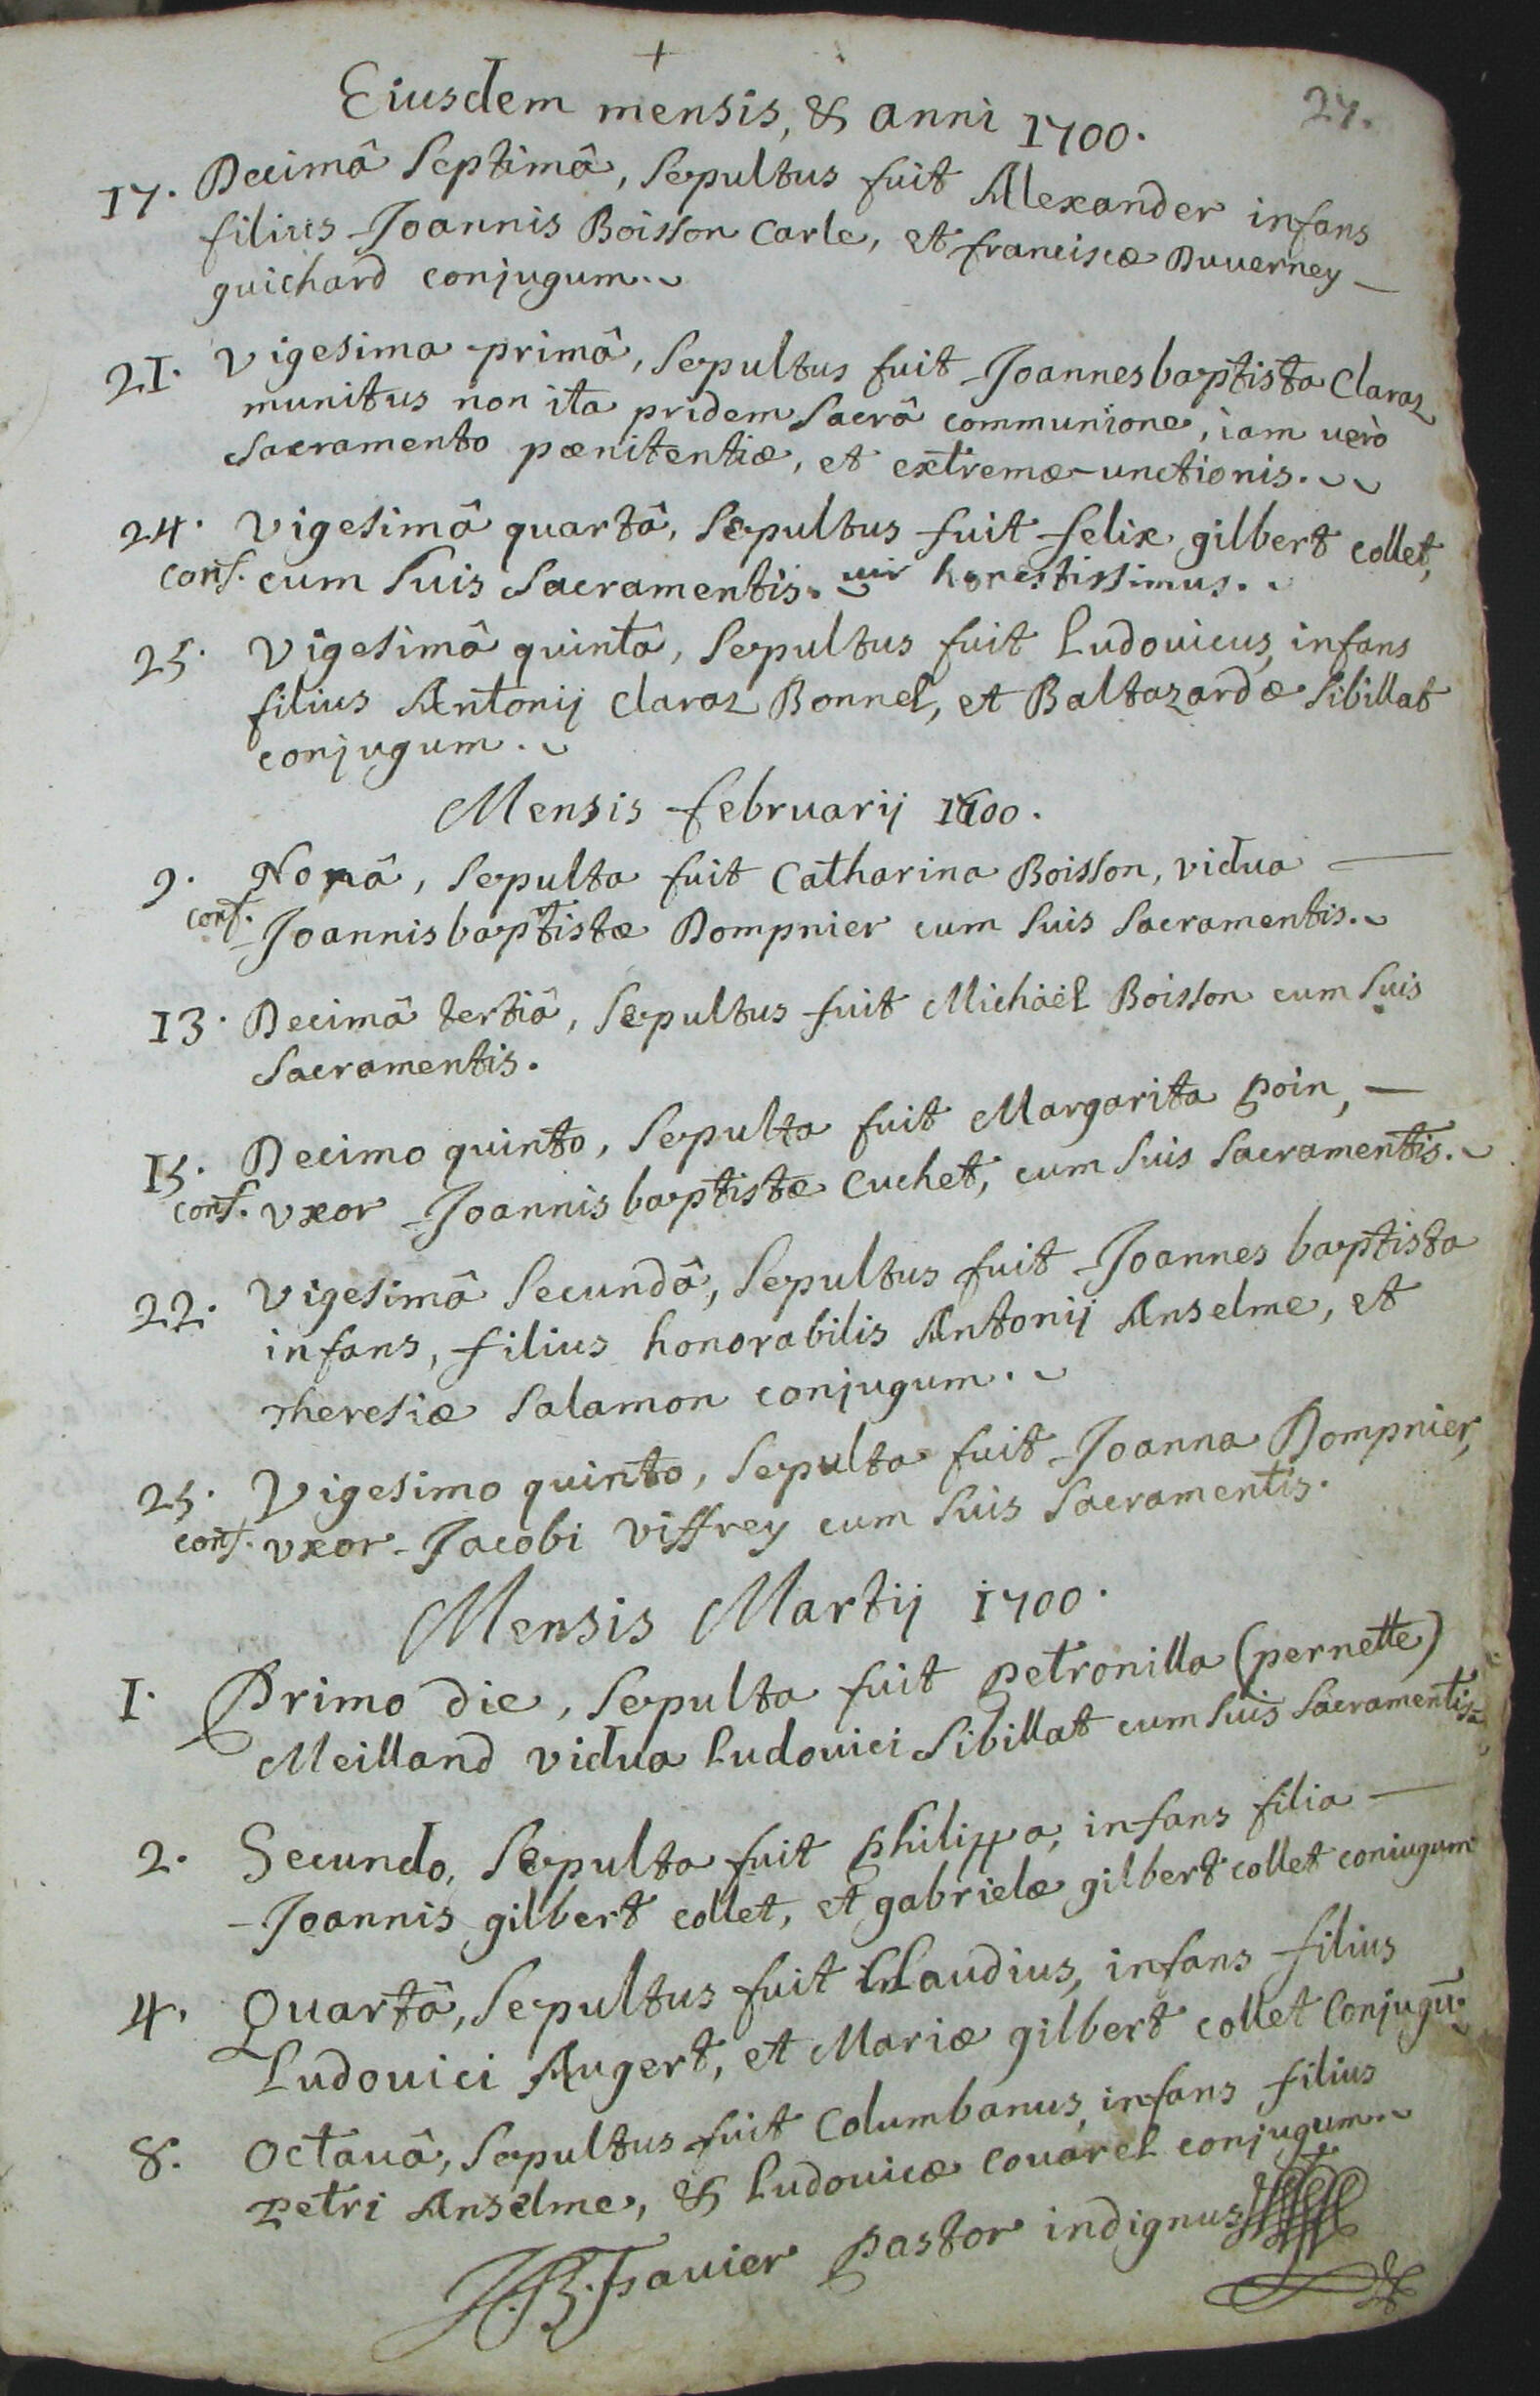 +
27.
Eiusdem mensis, & anni 1700.
17. Decimâ Septimâ, Sepultus fuit Alexander infans
filius Joannis Boisson Carle, et franciscæ Duuerney
guichard conjugum.
21. Vigesima primâ, Sepultus fuit Joannesbaptista Claraz
munitus non ita pridem Sacrâ communione, iam uerò
Sacramento pœnitentiæ, et extremæ-unctionis.
24. Vigesimâ quartâ, Sepultus fuit felix gilbert collet,
conf. cum Suis Sacramentis. uir honestissimus.
25. Vigesimâ quintâ, Sepultus fuit Ludouicus, infans
filius Antonij Claraz Bonnel, et Baltazardæ Sibillat
conjugum.
Mensis februarij 1700.
9. Nonâ, Sepulta fuit Catharina Boisson, vidua
conf. Joannisbaptistæ Dompnier cum Suis Sacramentis.
13. Decimâ tertiâ, Sepultus fuit Michaël Boisson cum Suis
Sacramentis.
15. Decimo quinto, Sepulta fuit Margarita poin,
conf. vxor Joannisbaptistæ Cuchet, cum Suis Sacramentis.
22. Vigesimâ Secundâ, Sepultus fuit Joannes baptista
infans, filius honorabilis Antonij Anselme, et
Theresiæ Salamon conjugum.
25. Vigesimo quinto, Sepulta fuit Joanna Dompnier,
conf. vxor Jacobi Viffrey cum Suis Sacramentis.
Mensis Martij 1700.
1. Primo die, Sepulta fuit petronilla (pernette)
Meilland vidua Ludouici Sibillat cum Suis Sacramentis
2. Secundo, Sepulta fuit philippa, infans filia
Joannis gilbert collet, et gabrielæ gilbert collet coniugum
4. Quartâ, Sepultus fuit Claudius, infans filius
Ludouici Augert, et Mariæ gilbert collet Conjugū.
8. Octauâ, Sepultus fuit Columbanus, infans filius
petri Anselme, & Ludouicæ Couarel conjugum.
pastor indignus